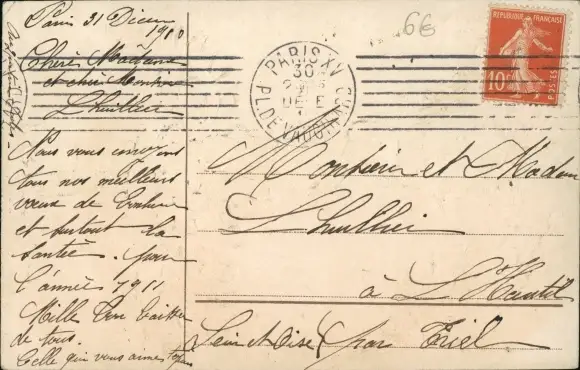 Paris 31 Décem
1910
Chère Madame
et cher Monsieur
Lhuillier
Nous vous envoyons
tous nos meilleurs
vœux de bonheur
et surtout la
santée. pour
l'année 1911
Mille bon baiser
de tous.
Celle qui vous aimes toujours
PARIS XV
30
PL. DE VAUGIRARD
66
REPUBLIQUE FRANÇAISE
10
POSTES
Monsieur et Madam
Lhuillier
à L'Hautil
Seine et Oise (par Triel